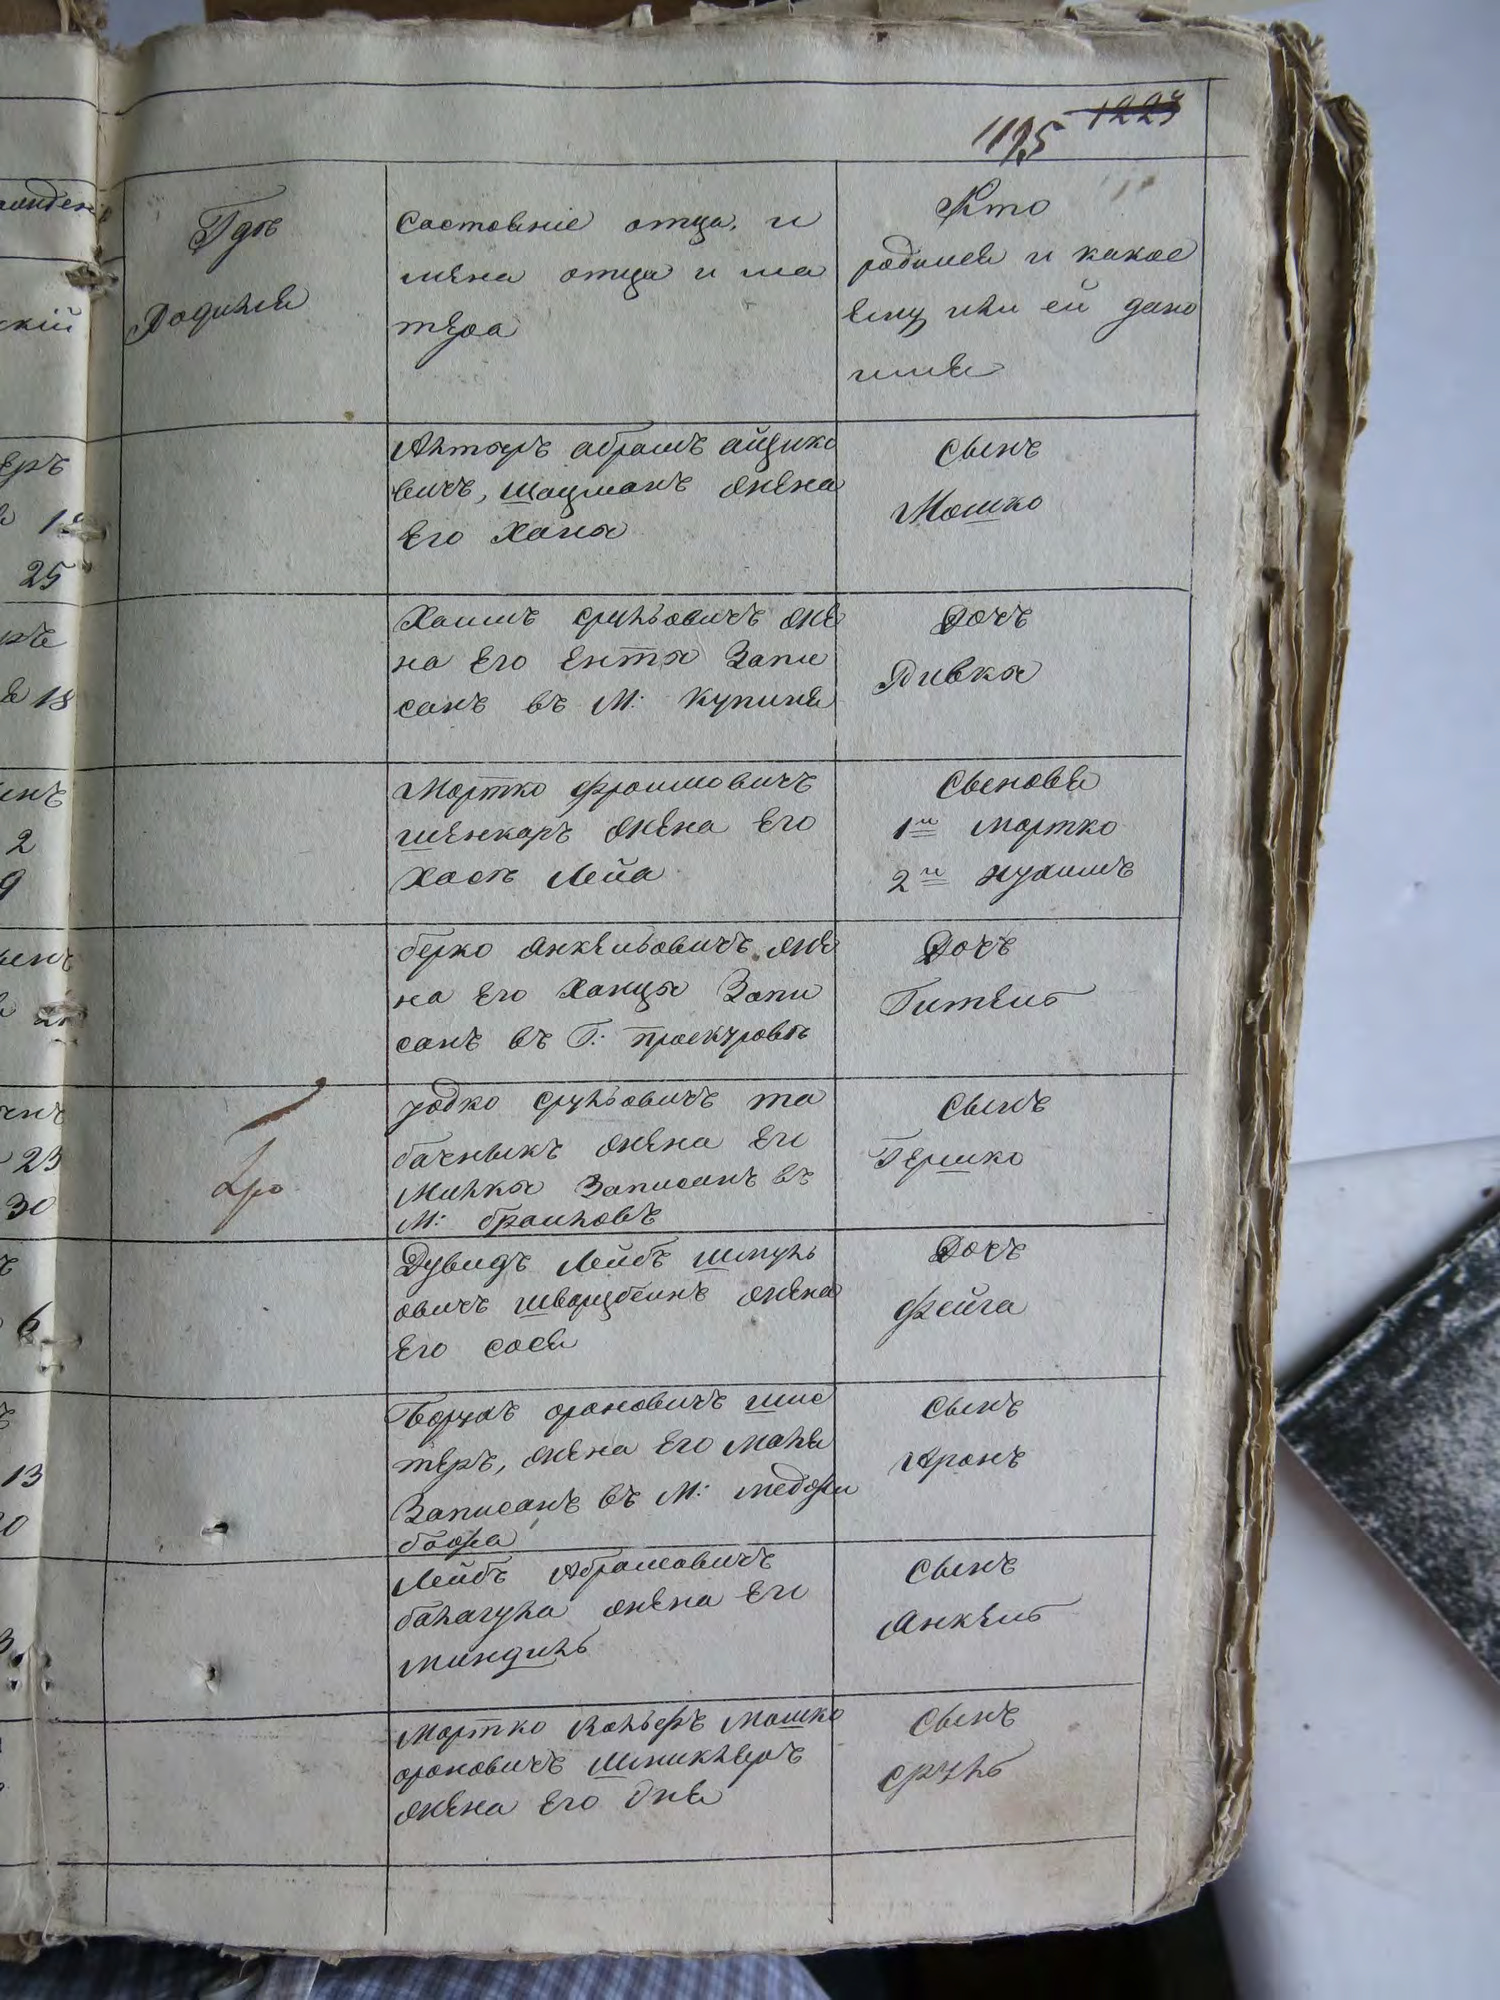 1195 1223
Гдѣ
родился
Состояніе отца, и
мена отца и ма
тера
Кто
родился и какое
ему или ей дано
имя
Альтеръ абрамъ айзико
вичъ, шацманъ жена
его Ханя
Сынъ
Мошко
Хаимъ срульовичъ же
на его ента Запи
санъ въ М: Купиня
Дочъ
Ривка
Мортко фроимовичъ
шенкаръ жена его
Хася Лейа
Сыновя
1й мортко
2й нухимъ
берко янкельовичъ же
на его Ханця Запи
санъ въ Г: проскуровѣ
Дочъ
Гитель
юдко срульовичъ та
бачныкъ жена его
Малка Записанъ въ
М: браиловъ
Сынъ
Гершко
Дувидъ Лейбъ шмуль
овичъ шварцбеинъ жена
его сося
Дочъ
фейга
ороновичъ шис
теръ, жена его маля
Записанъ въ М: меджи
божа
Сынъ
Аронъ
Лейбъ Абрамовичъ
балагула жена его
миндиль
Сынъ
Янкель
Мортко Вольфъ мошко
ороновичъ шпиклеръ
жена его
Сынъ
сруль
25
18
2
9
23
30
6
13